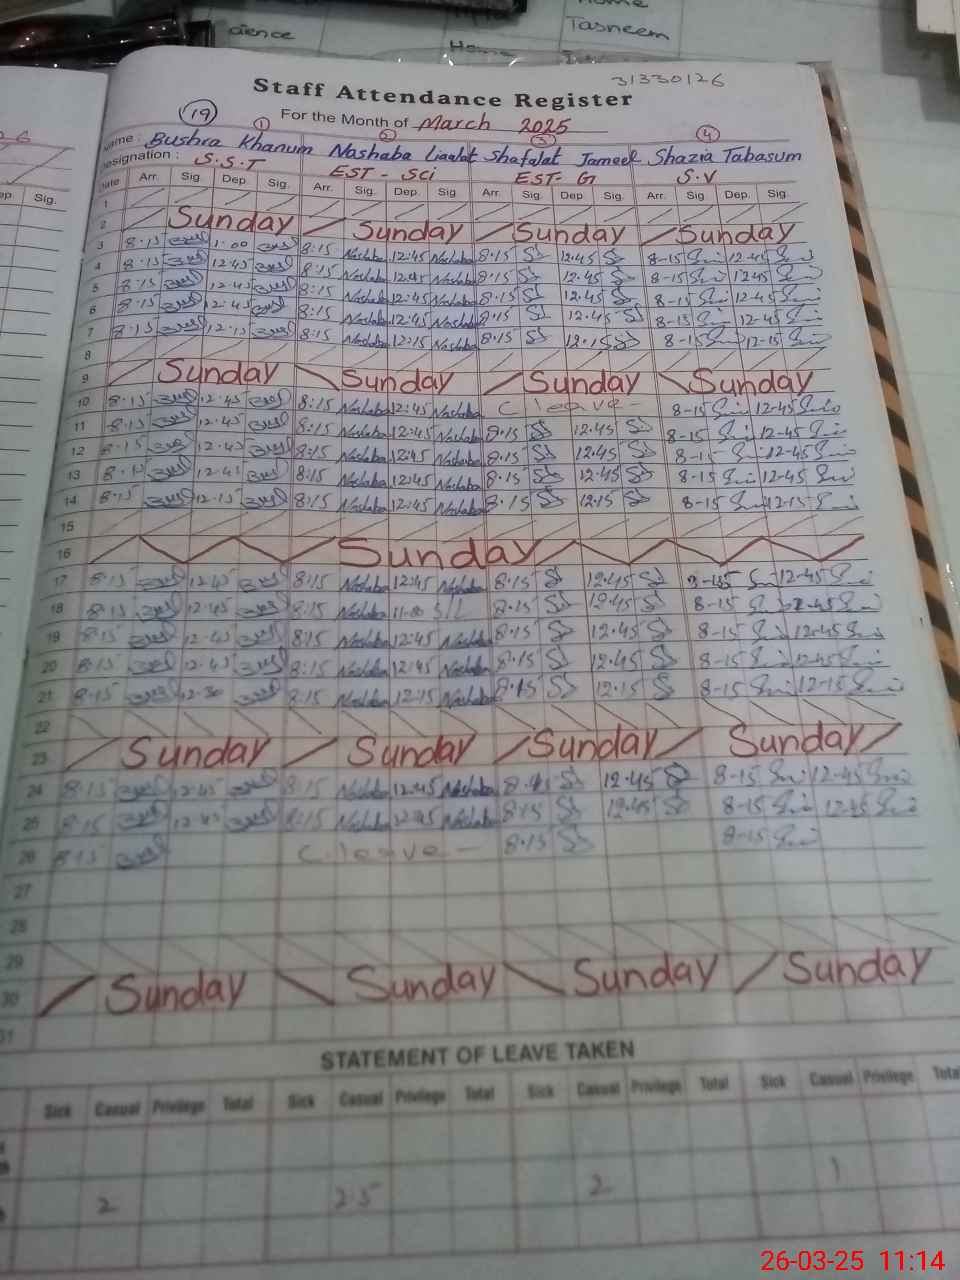 Home
Tasneem
Home
31330126
Staff Attendance Register
19
For the Month of March 2025
1 2 3 4
Name : Bushra Khanum Nashaba Liaalat Shafalat Jameel Shazia Tabasum
Designation : S.S.T EST - Sci EST- G S.V
Date Arr. Sig. Dep. Sig. Arr. Sig. Dep. Sig. Arr. Sig. Dep. Sig. Arr. Sig. Dep. Sig.
1
2 Sunday Sunday Sunday Sunday
3 8.15 1.00 8:15 Nashaba 12:45 Nashaba 8.15 12.45 8-15 12-45
4 8.15 12.45 8:15 Nashaba 12:45 Nashaba 8.15 12.45 8-15 12.45
5 8.15 12.45 8:15 Nashaba 12:45 Nashaba 8.15 12.45 8-15 12-45
6 8.15 12.45 8:15 Nashaba 12:45 Nashaba 8.15 12.45 8-15 12-45
7 8.15 12.15 8:15 Nashaba 12:15 Nashaba 8.15 12.15 8-15 12-15
8
9 Sunday Sunday Sunday Sunday
10 8.15 12.45 8:15 Nashaba 12:45 Nashaba C leave - 8-15 12-45
11 8.15 12.45 8:15 Nashaba 12:45 Nashaba 8.15 12.45 8-15 12-45
12 8.15 12.45 8:15 Nashaba 12:45 Nashaba 8.15 12.45 8-15 12-45
13 8.15 12.45 8:15 Nashaba 12:45 Nashaba 8.15 12.45 8-15 12-45
14 8.15 12.15 8:15 Nashaba 12:15 Nashaba 8.15 12.15 8-15 12-15
15
16 Sunday
17 8.15 12.45 8:15 Nashaba 12:45 Nashaba 8.15 12.45 12-45
18 8.15 12.45 8:15 Nashaba 11.00 S/L 8.15 12.45 8-15 12-45
19 8.15 12.45 8:15 Nashaba 12:45 Nashaba 8.15 12.45 8-15 12-45
20 8.15 12.45 8:15 Nashaba 12:45 Nashaba 8.15 12.45 8-15 12-45
21 8.15 12.30 8:15 Nashaba 12:15 Nashaba 8.15 12.15 8-15 12-15
22
23 Sunday Sunday Sunday Sunday
24 8.15 12.45 8:15 Nashaba 12:45 Nashaba 8.15 12.45 8-15 12-45
25 8.15 12.45 8:15 Nashaba 12:45 Nashaba 8.15 12.45 8-15 12-45
26 8.15 C. leave - 8.15 8-15
27
28
29
30 Sunday Sunday Sunday Sunday
31
STATEMENT OF LEAVE TAKEN
Sick Casual Privilege Total Sick Casual Privilege Total Sick Casual Privilege Total Sick Casual Privilege Total
1
2 2.5 2
26-03-25 11:14